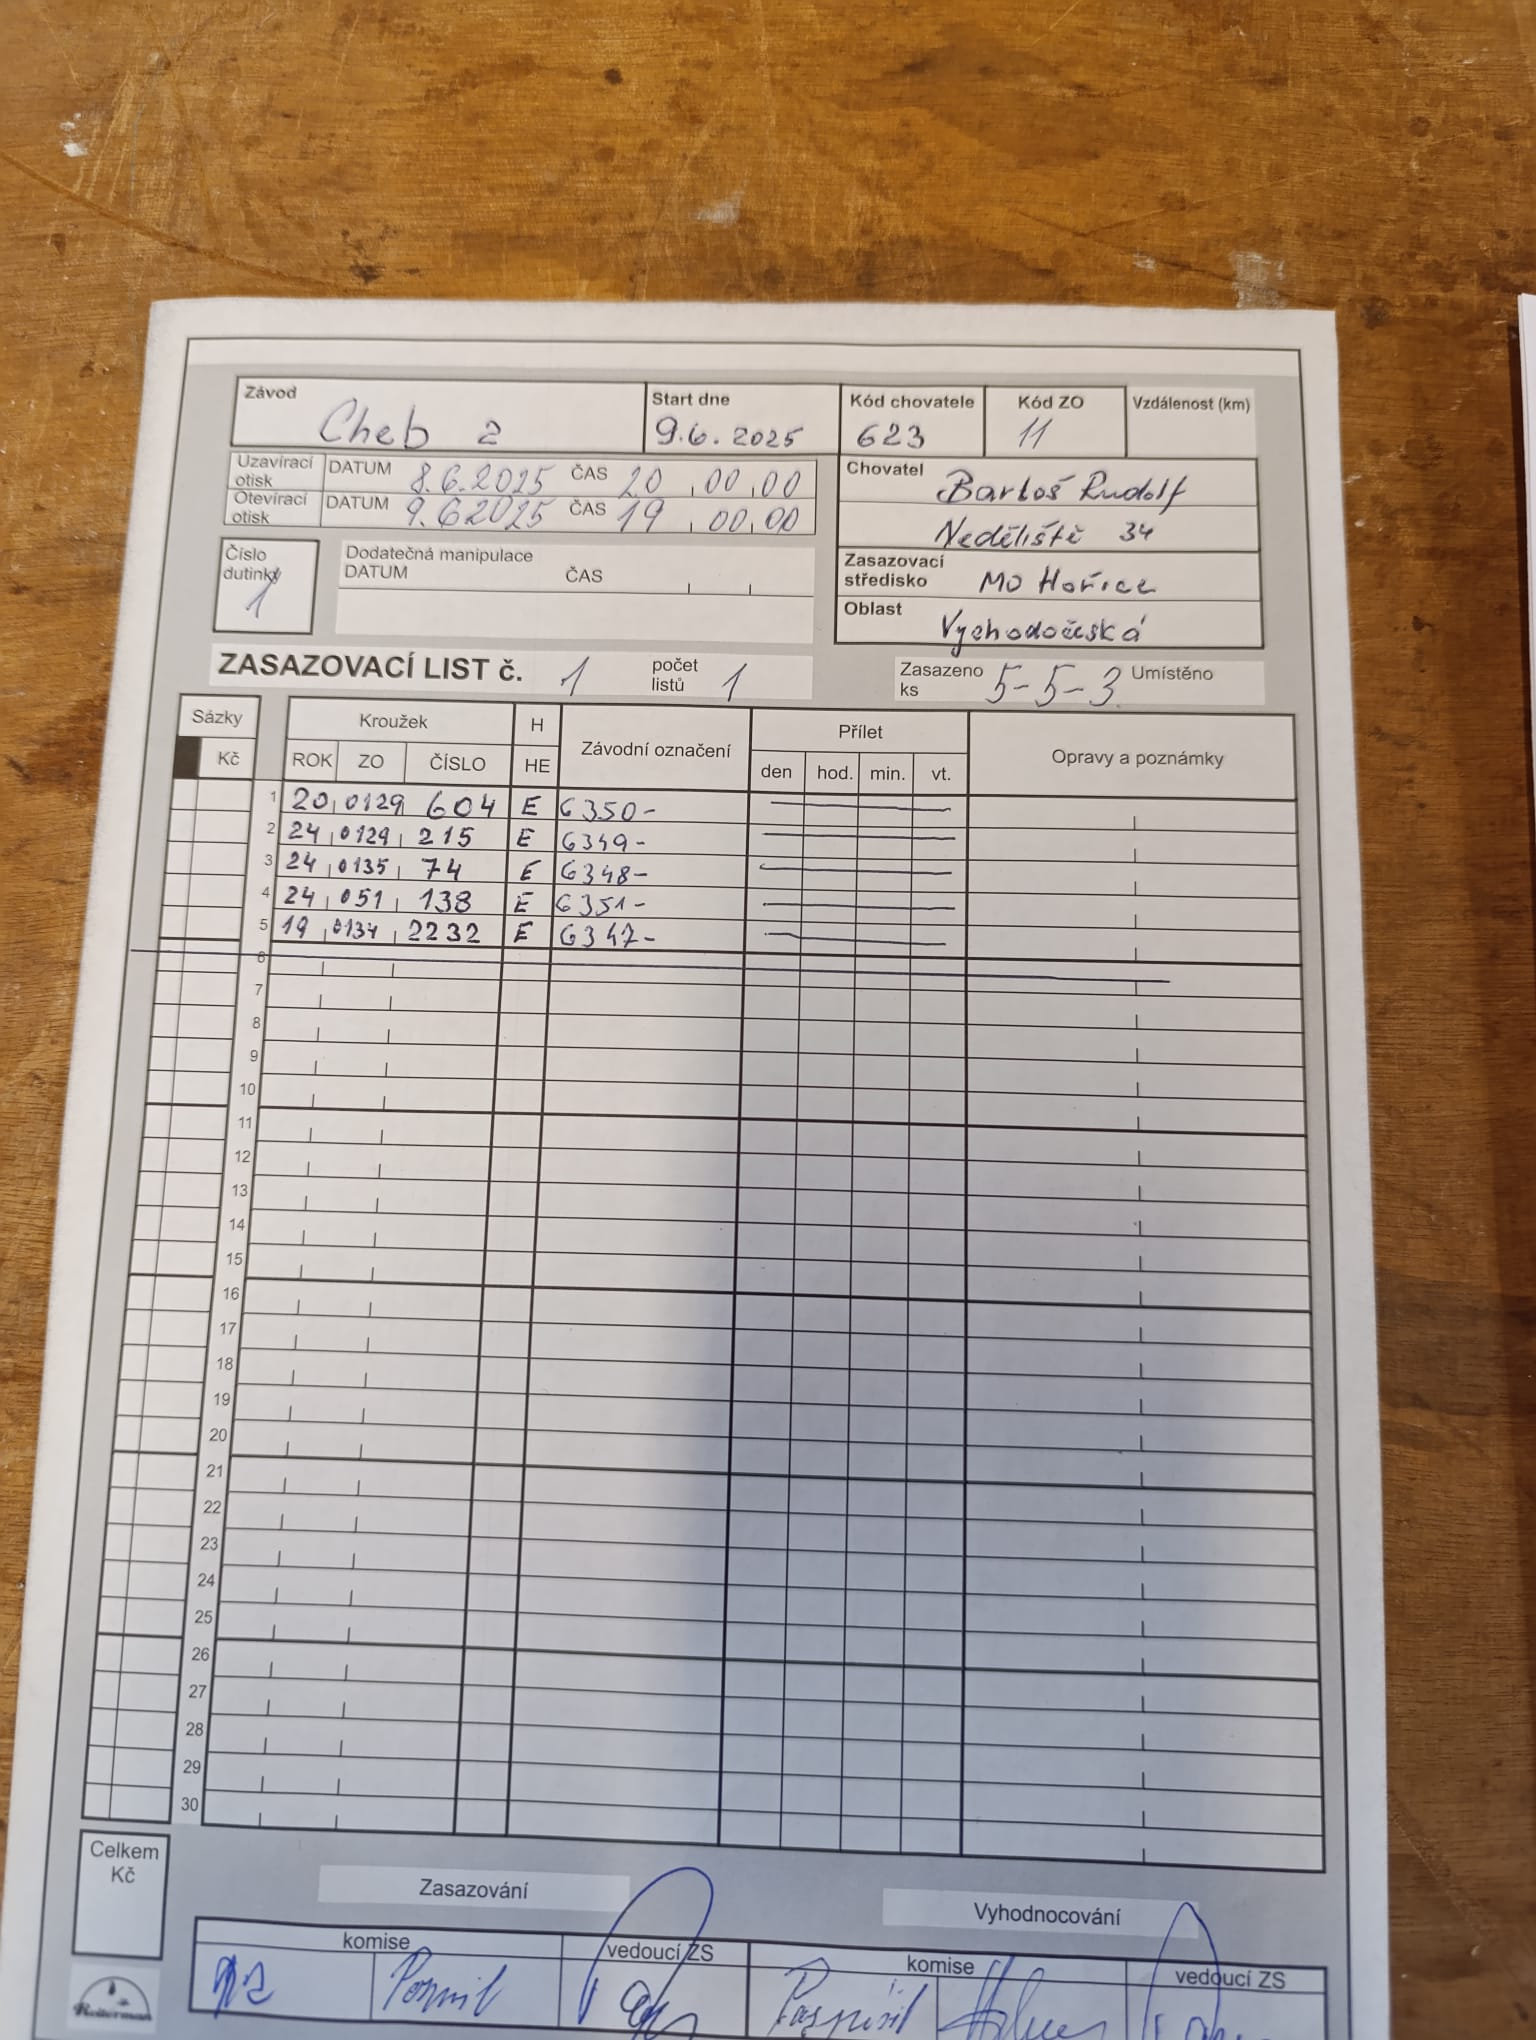 Závod Start dne Kód chovatele Kód ZO Vzdálenost (km)
Cheb 2 9.6.2025 623 11
Uzavírací otisk DATUM 8.6.2025 ČAS 20,00,00
Otevírací otisk DATUM 9.62025 ČAS 19,00,00
Chovatel Bartoš Rudolf
Neděliště 34
Číslo dutinky 1
Dodatečná manipulace
DATUM ČAS
Zasazovací středisko MO Hořice
Oblast Vychodočeská
ZASAZOVACÍ LIST č. 1 počet listů 1 Zasazeno ks 5-5-3 Umístěno
Sázky Kroužek H Závodní označení Přílet Opravy a poznámky
Kč ROK ZO ČÍSLO HE den hod. min. vt.
1 20 0129 604 E 6350-
2 24 0129 215 E 6349-
3 24 0135 74 E 6348-
4 24 051 138 E 6351-
5 19 0134 2232 E 6347-
6
7
8
9
10
11
12
13
14
15
16
17
18
19
20
21
22
23
24
25
26
27
28
29
30
Celkem Kč
Zasazování Vyhodnocování
komise vedoucí ZS komise vedoucí ZS
Reiterman